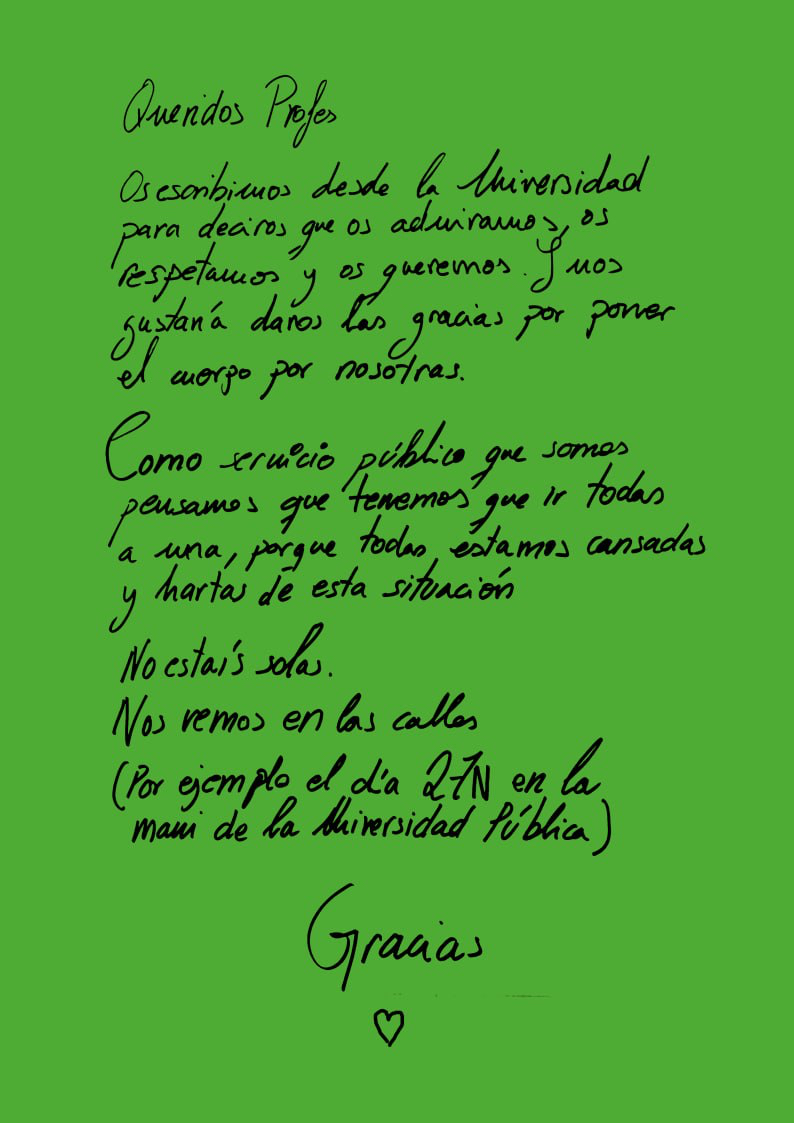 Queridos Profes
Os escribimos desde la Universidad
para deciros que os admiramos, os
respetamos y os queremos. Y nos
gustaría daros las gracias por poner
el cuerpo por nosotras.
Como servicio público que somos
pensamos que tenemos que ir todas
a una, porque todas estamos cansadas
y hartas de esta situación
No estaís solas.
Nos vemos en las calles
(Por ejemplo el día 27N en la
mani de la Universidad Pública)
Gracias